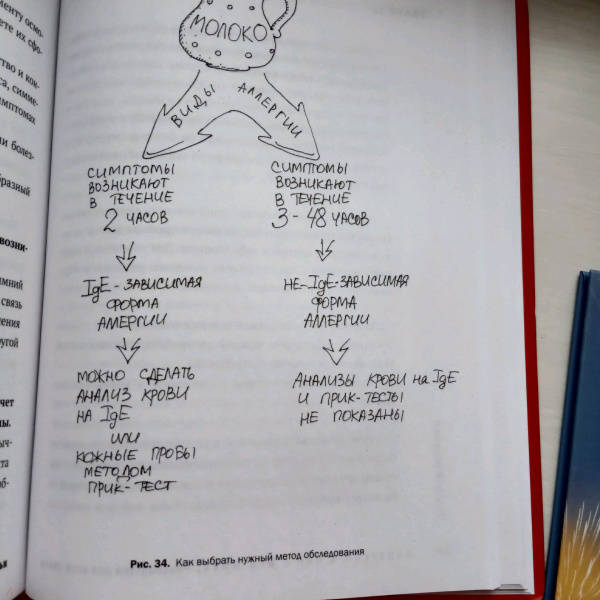 менту осмо-
ете их сфо-
тво и кон-
са, симпе-
имптомах
ии болез-
бразный
возни-
имний
связь
ления
ругой
чет
ны.
ыч-
та
об-
ья
МОЛОКО
ВИДЫ АЛЛЕРГИИ
СИМПТОМЫ
ВОЗНИКАЮТ
В ТЕЧЕНИЕ
2 ЧАСОВ
IgE-ЗАВИСИМАЯ
ФОРМА
АЛЛЕРГИИ
МОЖНО СДЕЛАТЬ
АНАЛИЗ КРОВИ
НА IgE
ИЛИ
КОЖНЫЕ ПРОБЫ
МЕТОДОМ
ПРИК-ТЕСТ
СИМПТОМЫ
ВОЗНИКАЮТ
В ТЕЧЕНИЕ
3-48 ЧАСОВ
НЕ-IgE-ЗАВИСИМАЯ
ФОРМА
АЛЛЕРГИИ
АНАЛИЗЫ КРОВИ на IgE
И ПРИК-ТЕСТЫ
НЕ ПОКАЗАНЫ
Рис. 34. Как выбрать нужный метод обследования